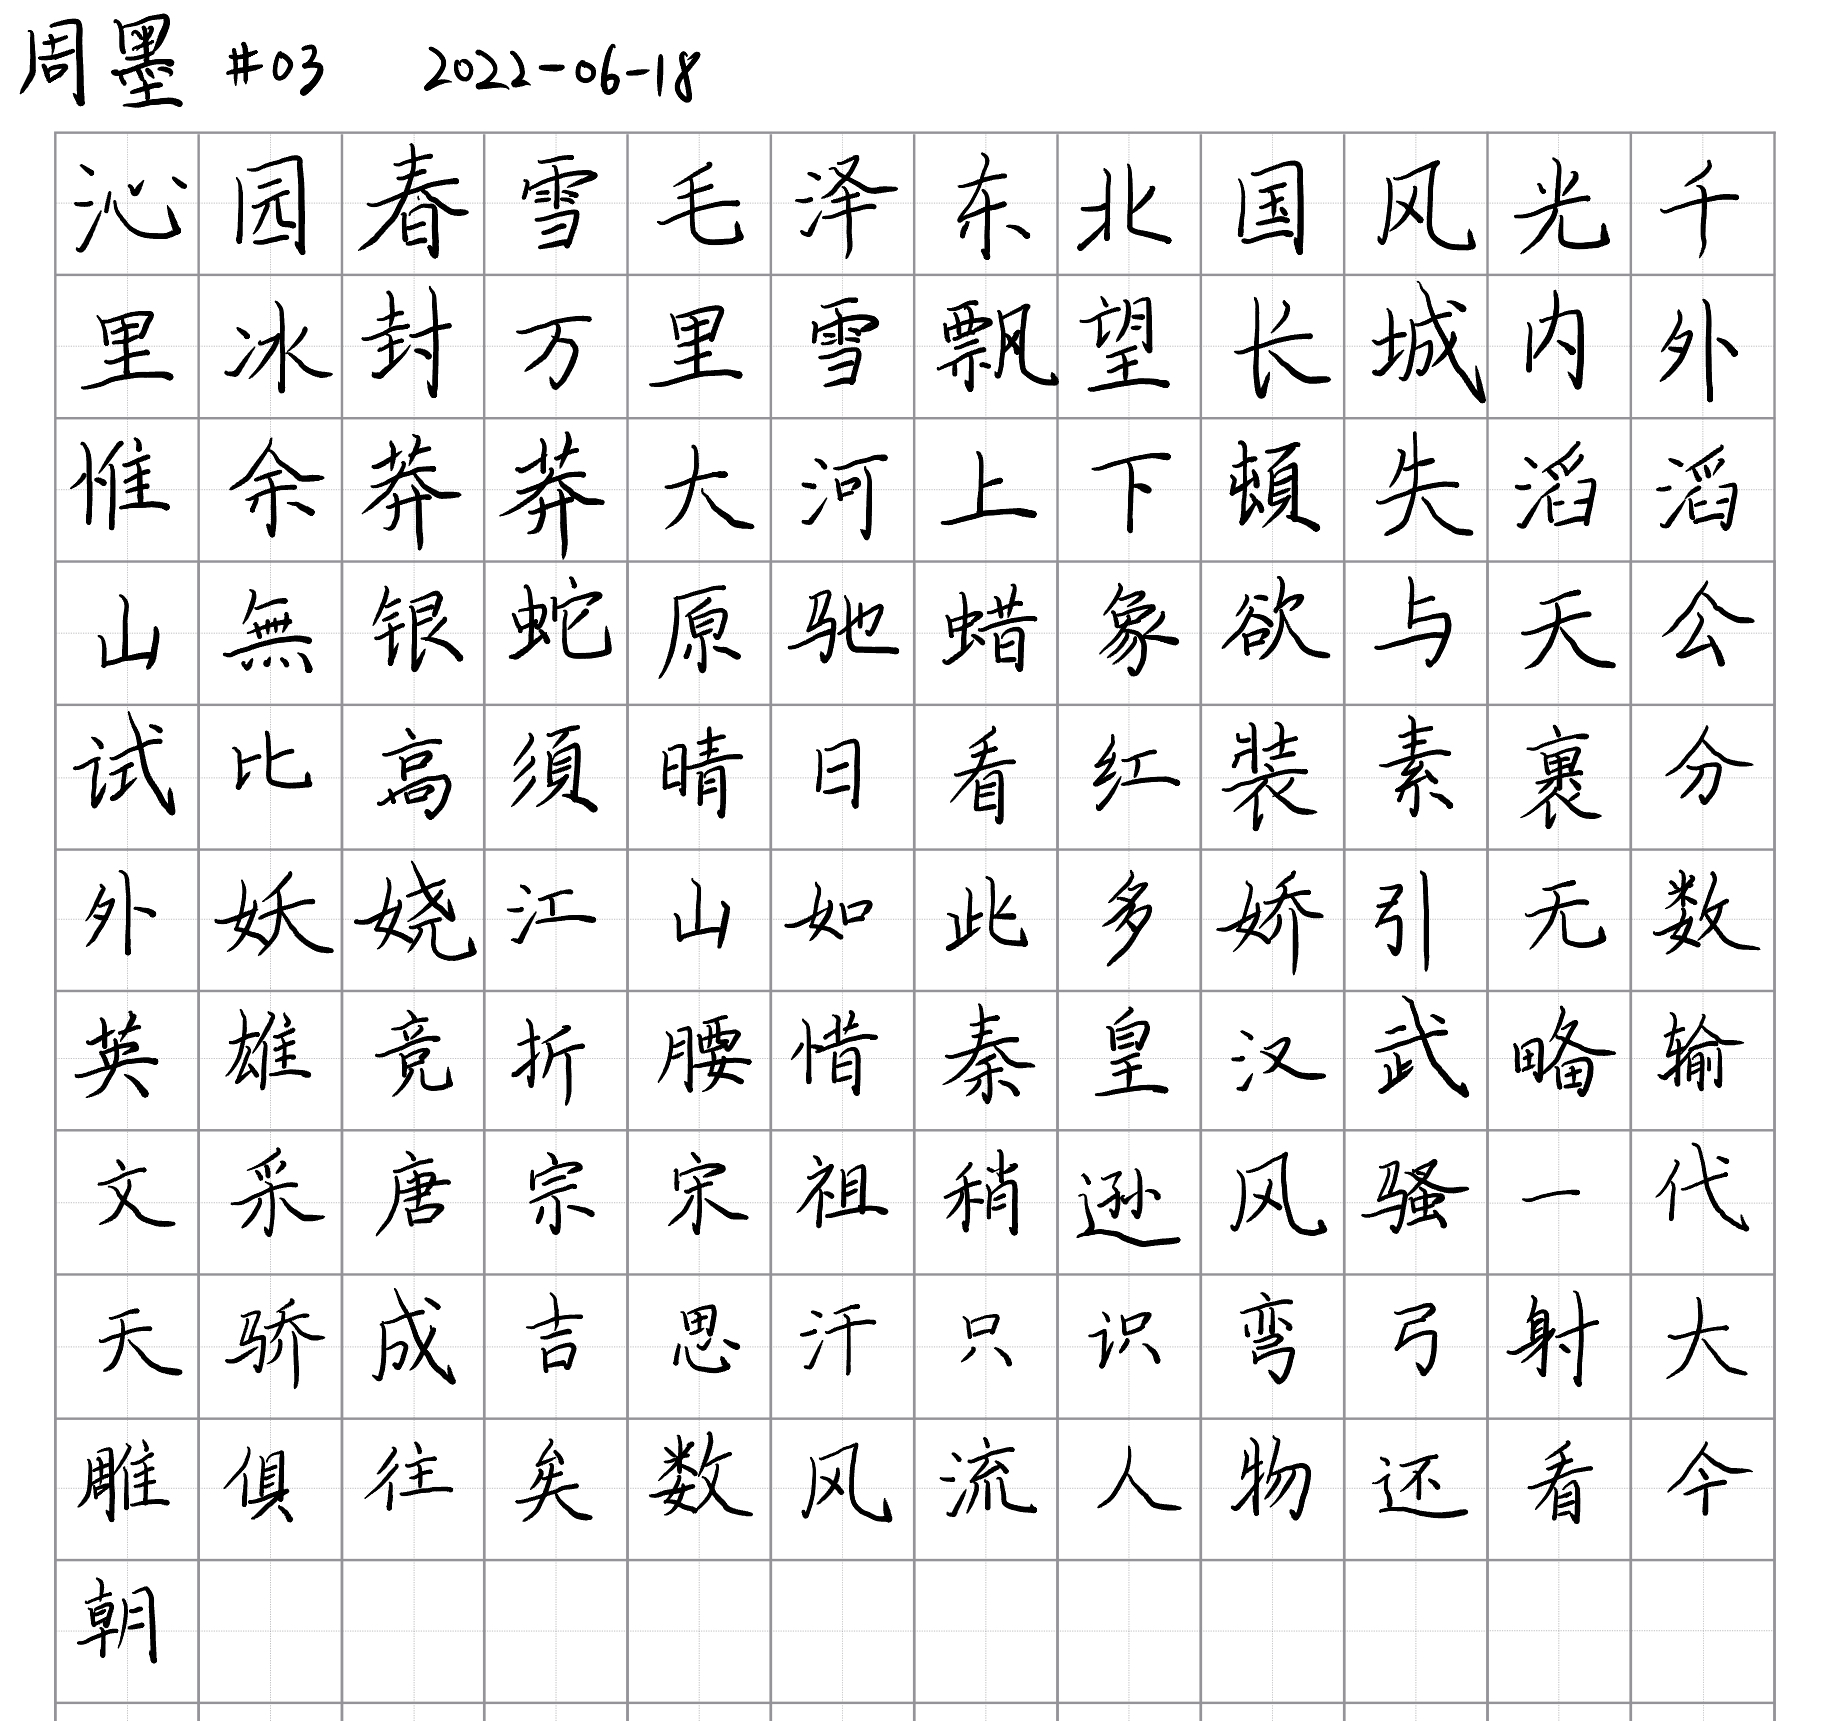 周墨 #03 2022-06-18
沁园春雪毛泽东北国风光千
里冰封万里雪飘望长城内外
惟余莽莽大河上下頓失滔滔
山無银蛇原驰蜡象欲与天公
试比高須晴日看红装素裹分
外妖娆江山如此多娇引无数
英雄竞折腰惜秦皇汉武略输
文采唐宗宋祖稍逊风骚一代
天骄成吉思汗只识弯弓射大
雕俱往矣数风流人物还看今
朝